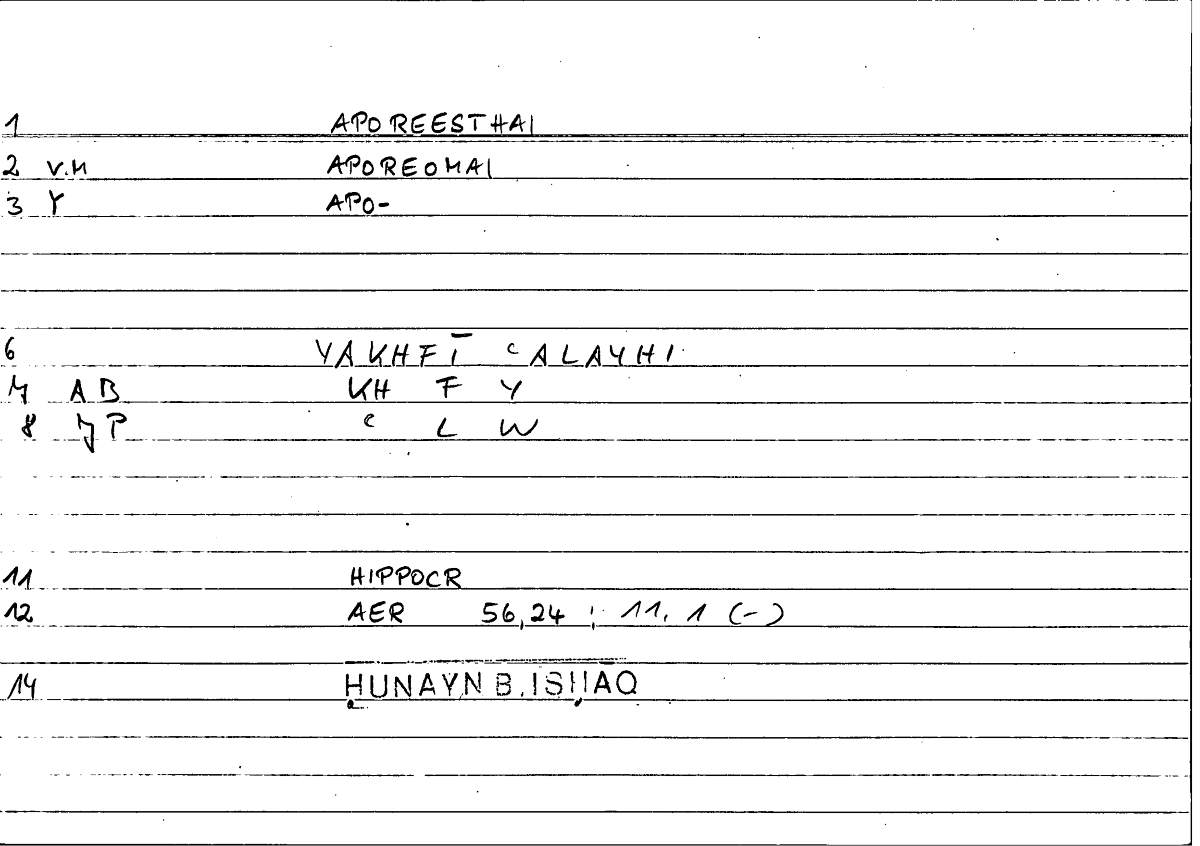 1 APOREESTHAI
2 V.M APOREOMAI
3 Y APO-
6 YAKHFĪ ᶜALAYHI
7 AB KH F Y
8 JP ᶜ L W
11 HIPPOCR
12 AER 56,24 ; 11,1 (-)
14 ḤUNAYN B. ISḤĀQ